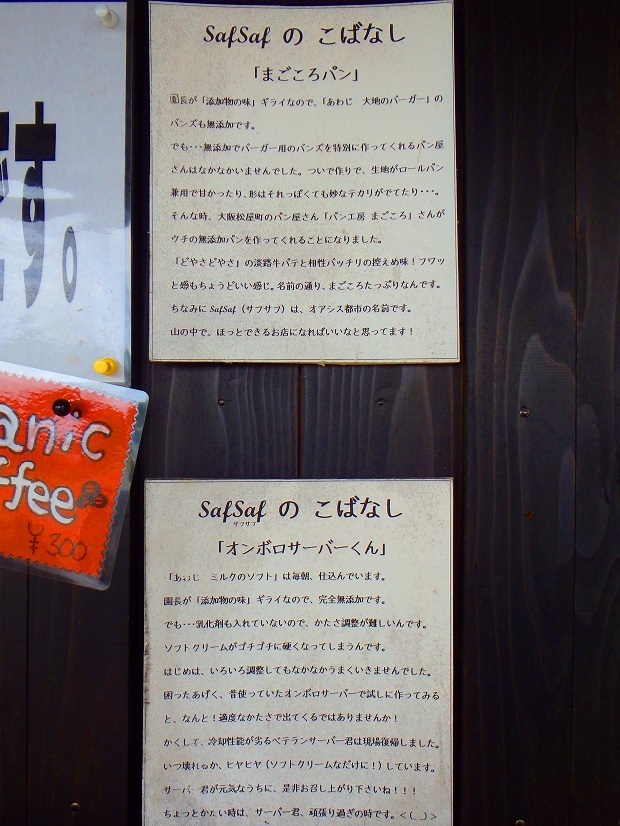 す。
anic
ffee
¥300
SafSaf の こばなし
「まごころパン」
園長が「添加物の味」ギライなので、「あわじ 大地のバーガー」の
バンズも無添加です。
でも・・・無添加でバーガー用のバンズを特別に作ってくれるパン屋
さんはなかなかいませんでした。ついで作りで、生地がロールパン
兼用で甘かったり、形はそれっぽくても妙なテカリがでてたり・・・。
そんな時、大阪松屋町のパン屋さん「パン工房 まごころ」さんが
ウチの無添加パンを作ってくれることになりました。
「どやさどやさ」の淡路牛パテと相性バッチリの控えめ味！フワッ
と感もちょうどいい感じ。名前の通り、まごころたっぷりなんです。
ちなみに SafSaf（サフサフ）は、オアシス都市の名前です。
山の中で、ほっとできるお店になればいいなと思ってます！
SafSaf の こばなし
サフサフ
「オンボロサーバーくん」
「あわじ ミルクのソフト」は毎朝、仕込んでいます。
園長が「添加物の味」ギライなので、完全無添加です。
でも・・・乳化剤も入れていないので、かたさ調整が難しいんです。
ソフトクリームがゴチゴチに硬くなってしまうんです。
はじめは、いろいろ調整してもなかなかうまくいきませんでした。
困ったあげく、昔使っていたオンボロサーバーで試しに作ってみる
と、なんと！適度なかたさで出てくるではありませんか！
かくして、冷却性能が劣るベテランサーバー君は現場復帰しました。
いつ壊れるか、ヒヤヒヤ（ソフトクリームなだけに！）しています。
サーバー君が元気なうちに、是非お召し上がり下さいね！！！
ちょっとかたい時は、サーバー君、頑張り過ぎの時です。<(_ _)>